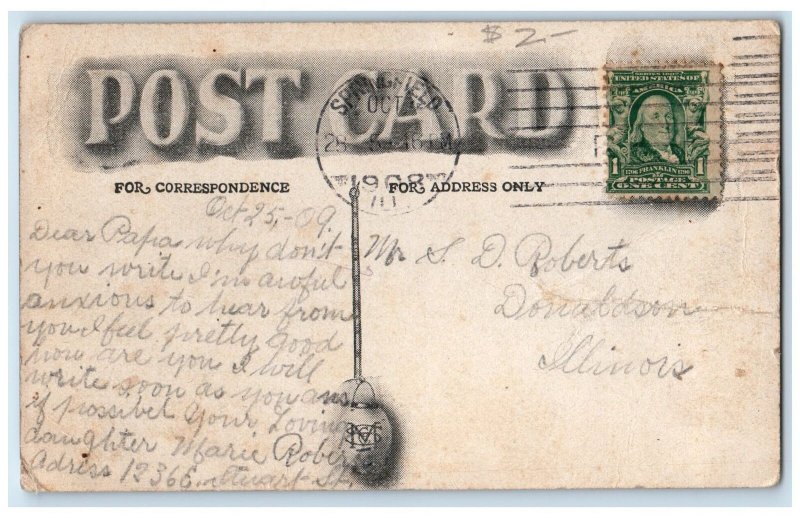 $2-
POST CARD
SPRINGFIELD
OCT
28
1908
ILL.
SERIES 1902
UNITED STATES OF
AMERICA
1 FRANKLIN 1
POSTAGE
ONE CENT
FOR CORRESPONDENCE
FOR ADDRESS ONLY
Oct 25,-09
Dear Papa why don't
you write I'm awful
anxious to hear from
you I feel pretty good
how are you I will
write soon as you ans.
if possibel Your Loving
daughter Marie Robert
Adress 1236 Stuart St.
Mr S. D. Roberts
Donaldson
Illinois